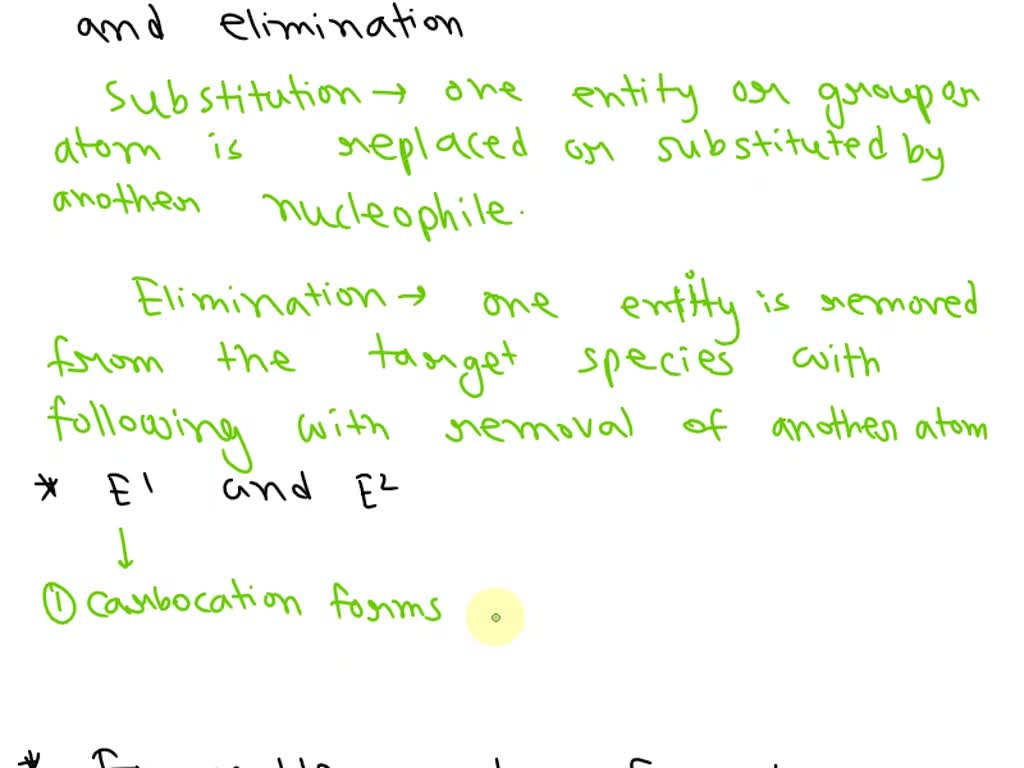 and elimination
Substitution → one entity or group or
atom is replaced or substituted by
another nucleophile.
Elimination → one entity is removed
from the target species with
following with removal of another atom
* E1 and E2
↓
① carbocation forms
*